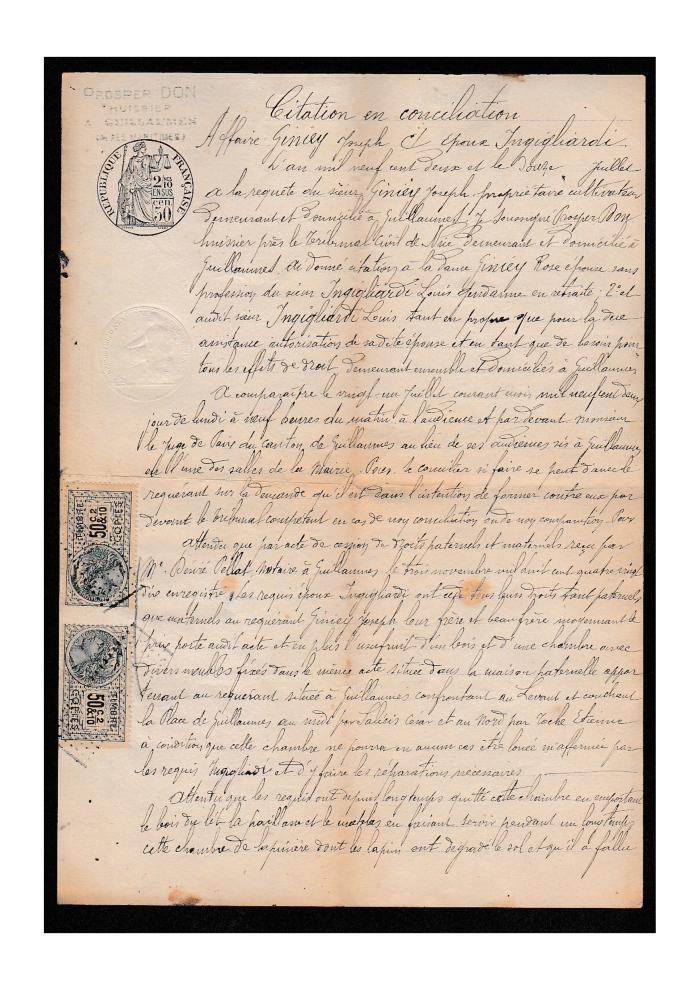 PROSPER DON
HUISSIER
A GUILLAUMES
(ALPES MARITIMES)
RÉPUBLIQUE FRANÇAISE
2/10 EN SUS
50 cen.
TIMBRE COPIES
50 C. 2 &10
TIMBRE COPIES
50 C. 2 &10
Citation en conciliation
Affaire Giniey Joseph C/ époux Ingigliardi.
L'an mil neuf cent deux et le Douze Juillet
a la requête du sieur Giniey Joseph propriétaire cultivateur
demeurant et domicilié à Guillaumes, Je soussigné Prosper Don
huissier près le Tribunal Civil de Nice demeurant et domicilié à
Guillaumes, ai donné citation à la Dame Giniey Rose épouse sans
profession du sieur Ingigliardi Louis Gendarme en retraite; 2° et
audit sieur Ingigliardi Louis tant en propre que pour la due
assistance autorisation de sa dite épouse et en tant que de besoin pour
tous les effets de droit, demeurant ensemble et domiciliés à Guillaumes
A comparaître le vingt-un Juillet courant mois mil neuf cent deux
jour de lundi à neuf heures du matin à l'audience et par devant monsieur
le Juge de Paix du canton de Guillaumes au lieu de ses audiences sis à Guillaumes
en l'une des salles de la Mairie, Pour se concilier si faire se peut d'avec le
requérant sur la demande qu'il est dans l'intention de former contre eux par
devant le tribunal compétent en cas de non conciliation ou de non comparution Pour
Attendu que par acte de cession de droits paternels et maternels reçu par
Me Désiré Pellat, notaire à Guillaumes le trois novembre mil huit cent quatre vingt
dix enregistré, les requis époux Ingigliardi ont cédé tous leurs droits tant paternels
que maternels au requérant Giniey Joseph leur frère et beau frère moyennant le
prix porté audit acte et en plus l'usufruit d'un bois et d'une chambre avec
divers meubles fixés dans le même acte située dans la maison paternelle appar
tenant au requérant située à Guillaumes confrontant au Levant et couchant
la Place de Guillaumes au midi par Salicis César et au Nord par Toche Etienne
à condition que cette chambre ne pourra en aucun cas être louée n'affermée par
les requis Ingigliardi et d'y faire les réparations nécessaires
Attendu que les requis ont depuis longtemps quitté cette chambre en emportant
le bois du lit la paillasse et le matelas en faisant servir pendant un longtemps
cette chambre de lapinière dont les lapins ont dégradé le sol et qu'il a fallu